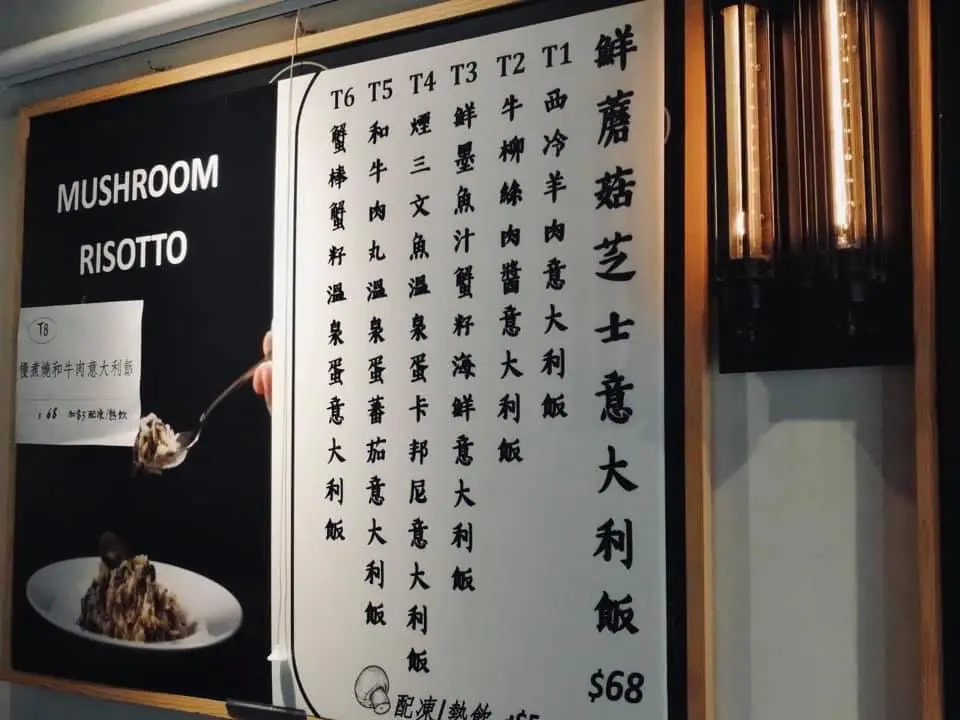 鮮蘑菇芝士意大利飯
$68
T1 西冷羊肉意大利飯
T2 牛柳絲肉醬意大利飯
T3 鮮墨魚汁蟹籽海鮮意大利飯
T4 煙三文魚溫泉蛋卡邦尼意大利飯
T5 和牛肉丸溫泉蛋蕃茄意大利飯
T6 蟹棒蟹籽溫泉蛋意大利飯
配凍/熱飲 +$5
MUSHROOM
RISOTTO
T8
慢煮燒和牛肉意大利飯
$68 加$5配凍/熱飲